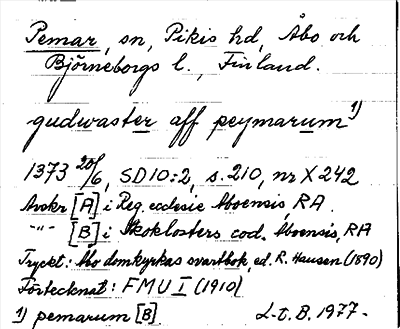 Pemar, sn, Pikis hd, Åbo och
Björneborgs l., Finland.
gudwaster aff peymarum 1)
1373 20/6, SD10:2, s. 210, nr X 242
Avskr [A] i Reg. ecclesie Aboensis, RA
-"- [B] i Skoklosters cod. Aboensis, RA
Tryckt: Åbo domkyrkas svartbok, ed. R. Hausen (1890)
Förtecknat: FMU I (1910)
1) pemarum [B] L-t. B. 1977.